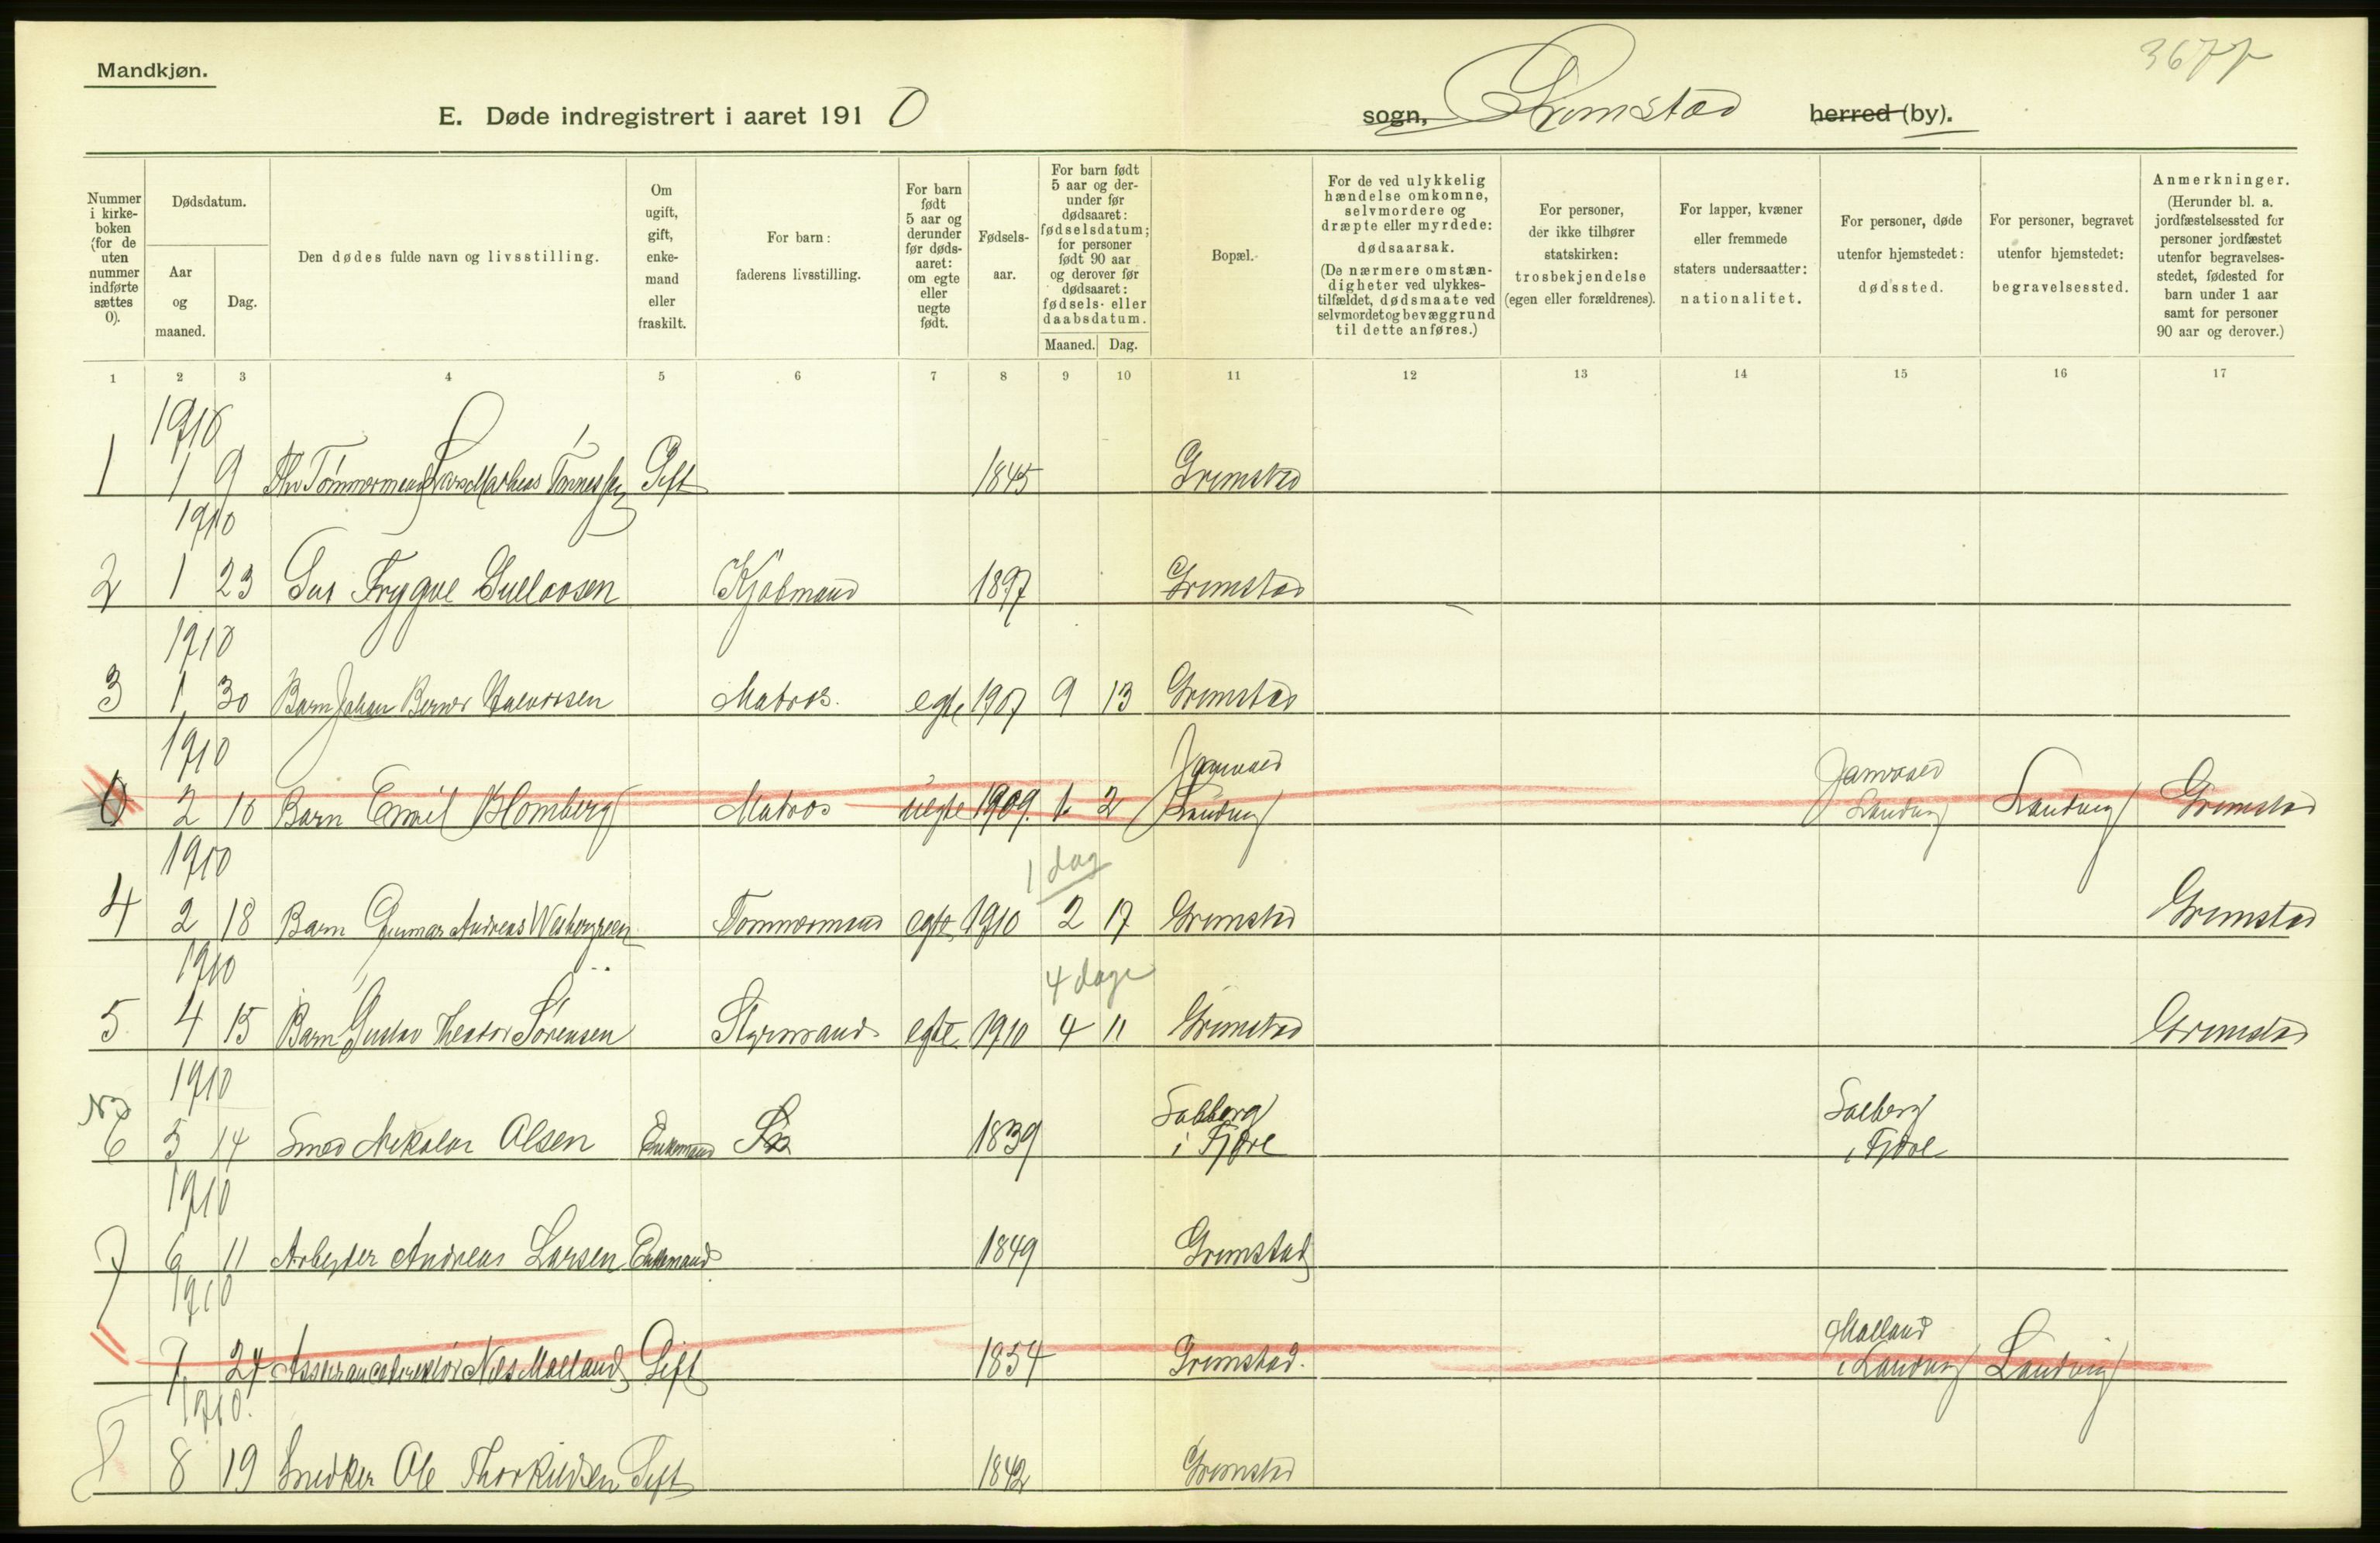 Mandkjøn.
3677
E. Døde indregistrert i aaret 1910
sogn, Grimstad herred (by).
Nummer i kirke-boken (for de uten nummer indførte sættes 0).
Dødsdatum.
Aar og maaned.
Dag.
Den dødes fulde navn og livsstilling.
Om ugift, gift, enke-mand eller fraskilt.
For barn: faderens livsstilling.
For barn født 5 aar og derunder før døds-aaret: om egte eller uegte født.
Fødsels-aar.
For barn født 5 aar og der-under før dødsaaret: fødselsdatum; for personer født 90 aar og derover før dødsaaret: fødsels- eller daabsdatum.
Maaned. Dag.
Bopæl.
For de ved ulykkelig hændelse omkomne, selvmordere og dræpte eller myrdede: dødsaarsak. (De nærmere omstæn-digheter ved ulykkes-tilfældet, dødsmaate ved selvmordet og bevæggrund til dette anføres.)
For personer, der ikke tilhører statskirken: trosbekjendelse (egen eller forældrenes).
For lapper, kvæner eller fremmede staters undersaatter: nationalitet.
For personer, døde utenfor hjemstedet: dødssted.
For personer, begravet utenfor hjemstedet: begravelsessted.
Anmerkninger. (Herunder bl. a. jordfæstelsessted for personer jordfæstet utenfor begravelses-stedet, fødested for barn under 1 aar samt for personer 90 aar og derover.)
1 2 3 4 5 6 7 8 9 10 11 12 13 14 15 16 17
1910
1 1 9 Tømmermand Tønnessen Gift 1845 Grimstad
1910
2 1 23 Trygve Kjøbmand 1897 Grimstad
1910
3 1 30 Barn Johan Berner Halvorsen Matros. egte 1907 9 13 Grimstad
1910
0 2 10 Barn Emil Blomberg Matros uegte 1909. 1 2 Landvig Landvig Landvig Grimstad
1910
1 dag
4 2 18 Barn Gunnar Andreas Westergreen Tømmermand egte 1910 2 17 Grimstad Grimstad
1910
4 dage
5 4 15 Barn Gustav Sørensen Styrmand egte 1910 4 11 Grimstad Grimstad
1910
6 5 14 Smed Nikolai Olsen Enkemand 1839 i Fjære i Fjære
1910
7 6 11 Arbeider Andreas Larsen Enkemand 1849 Grimstad
1910
7 24 Assurancedirektør Nils Malland Gift 1854 Grimstad. Malland i Landvig Landvig
1910.
8 8 19 Snedker Ole Thorkildsen Gift 1842 Grimstad